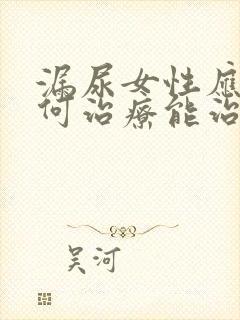 漏尿女性應
何治療能治
吴河